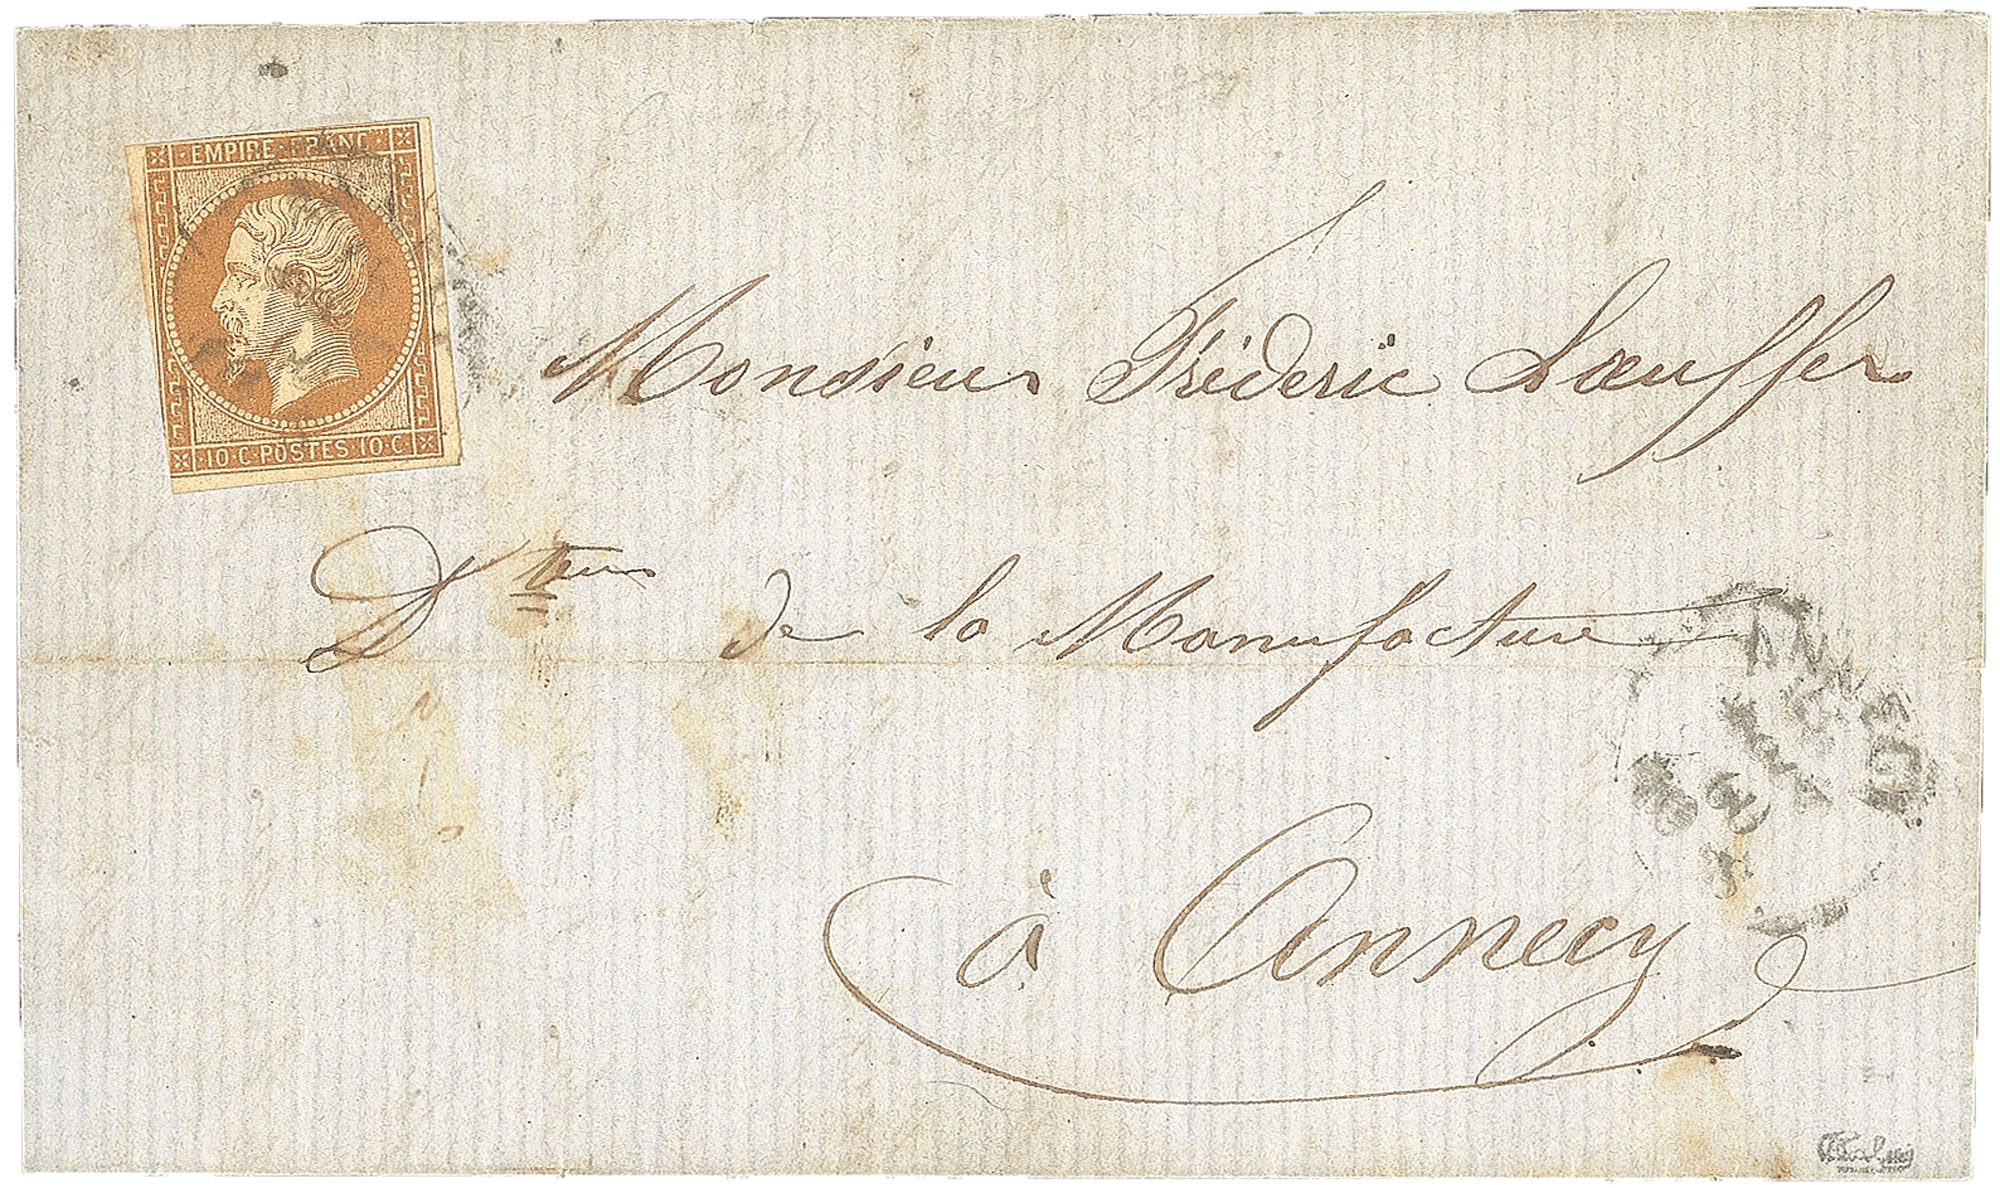 EMPIRE FRANC
10·C·POSTES·10·C·
Monsieur Fréderic Lœuffer
Dteur de la Manufacture
à Annecy